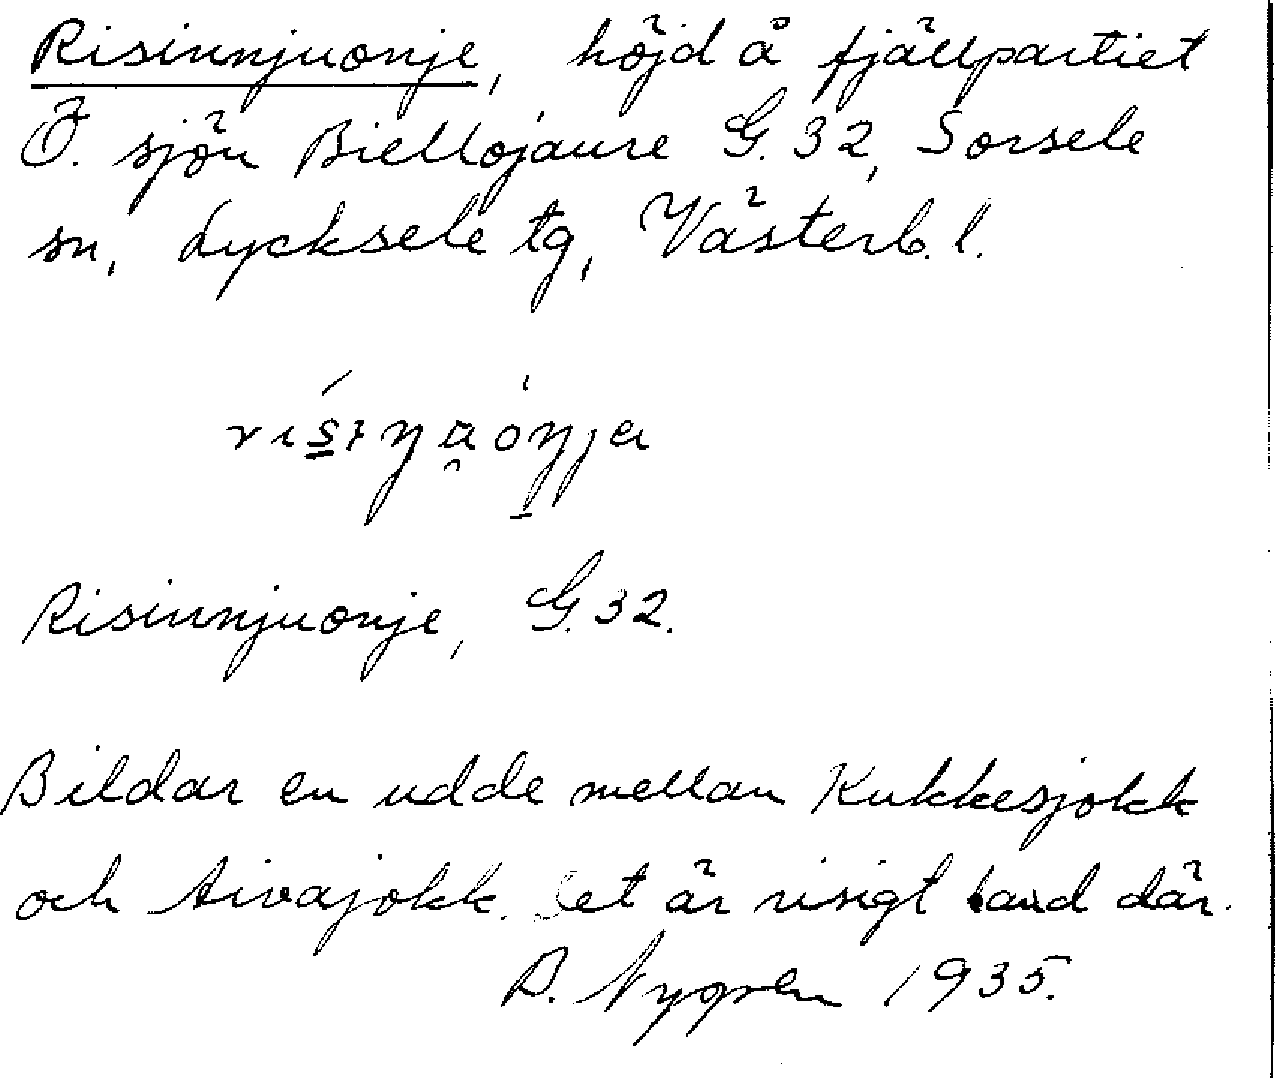 Risinnjuonje, höjd å fjällpartiet
Ö. sjön Biellojaure G. 32, Sorsele
sn, Lycksele tg, Västerb. l.
Risinnjuonje, G. 32.
Bildar en udde mellan Kukkesjokk
och Aivajokk. Det är risigt land där.
B. Nygren 1935.